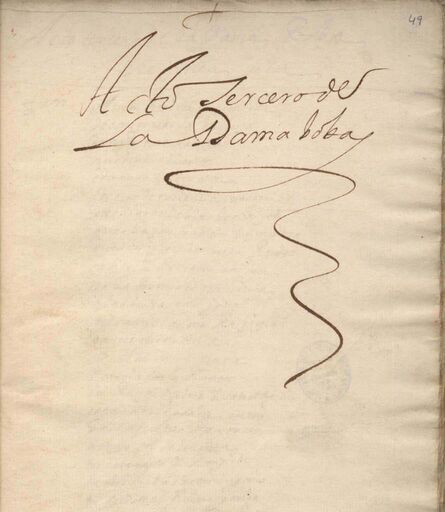 49
Acto tercero de
La Dama boba